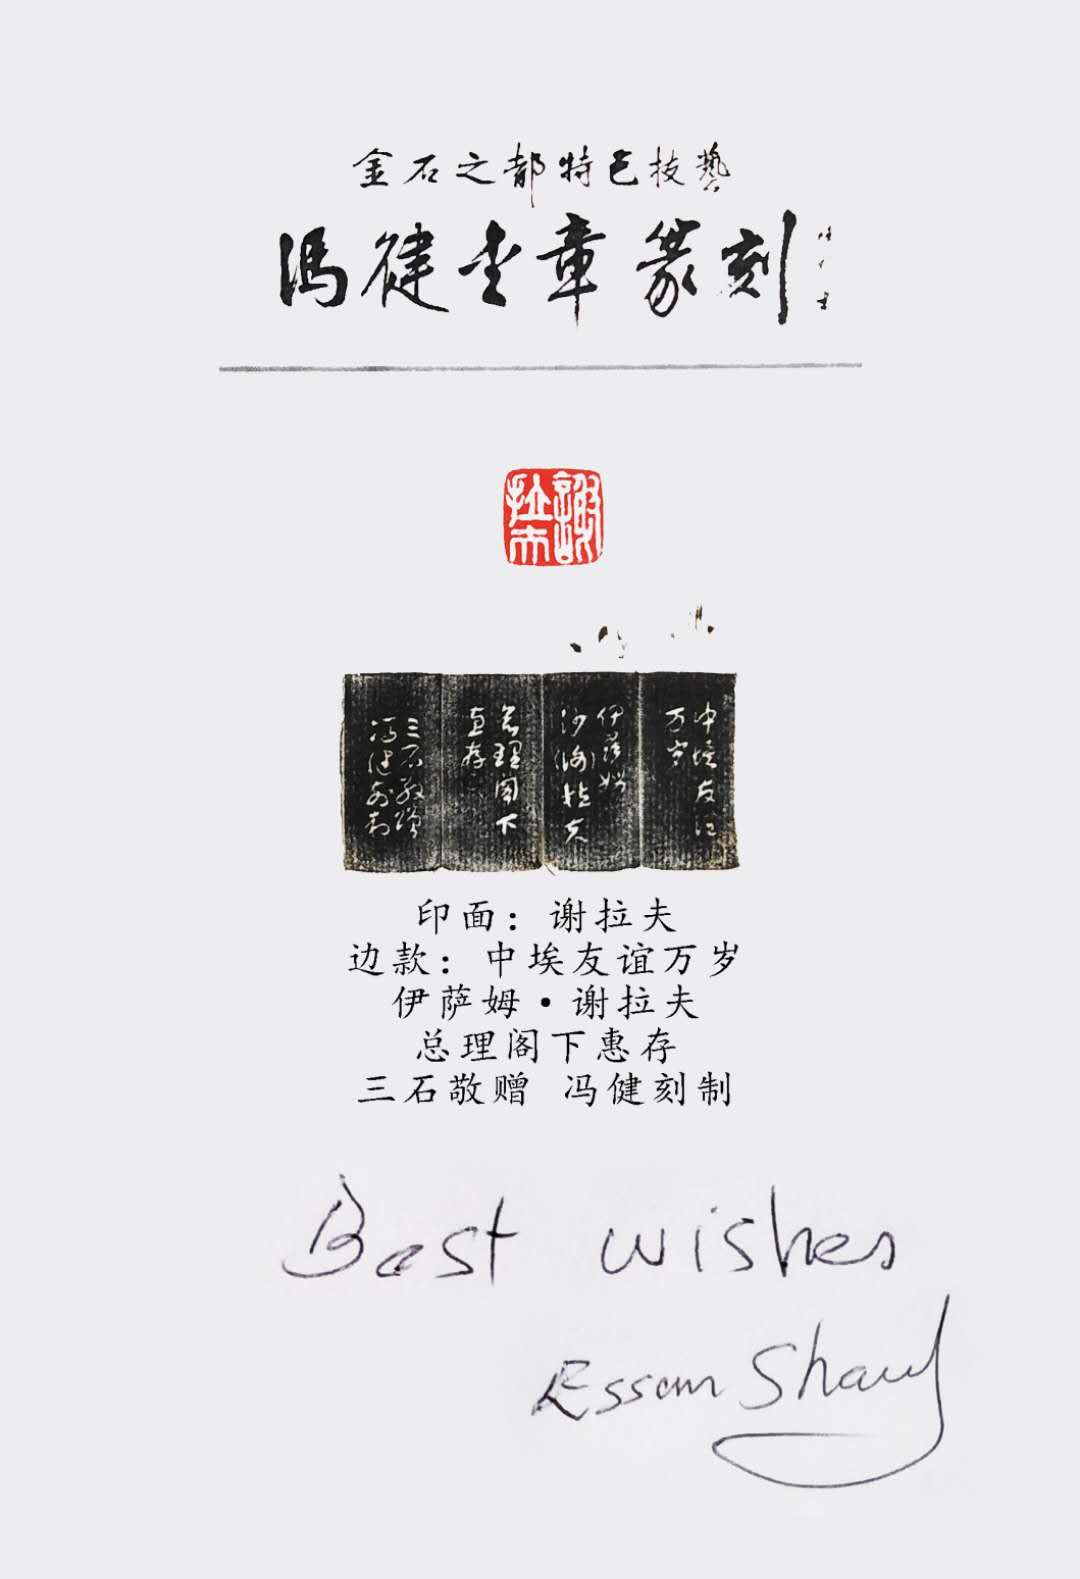 金石之都特色技藝
馮健金章篆刻
謝拉夫
中埃友谊
万岁
伊萨姆
谢拉夫
总理阁下
惠存
三石敬赠
冯健刻制
印面：谢拉夫
边款：中埃友谊万岁
伊萨姆·谢拉夫
总理阁下惠存
三石敬赠 冯健刻制
Best wishes
Essam Sharaf